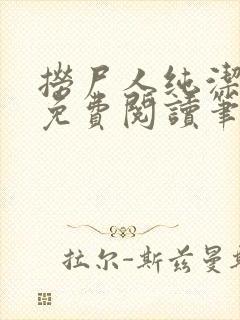 撈尸人純潔
免費閱讀筆
拉尔-斯兹曼斯